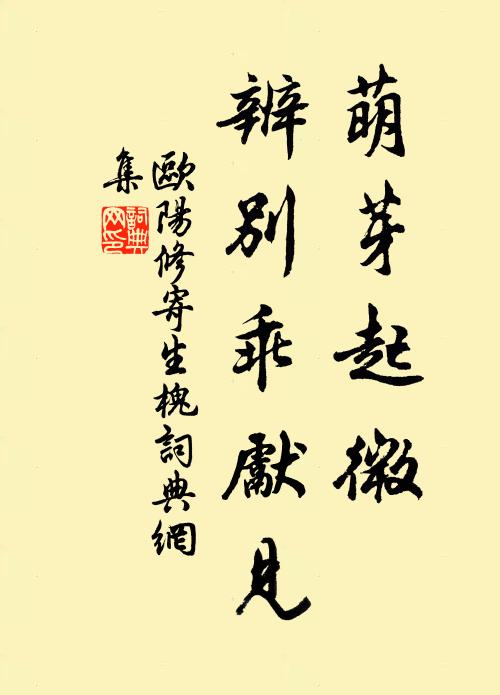 萌芽起微
辨別乖獻見
歐陽修寄生槐詞典網
集
詞典
网印